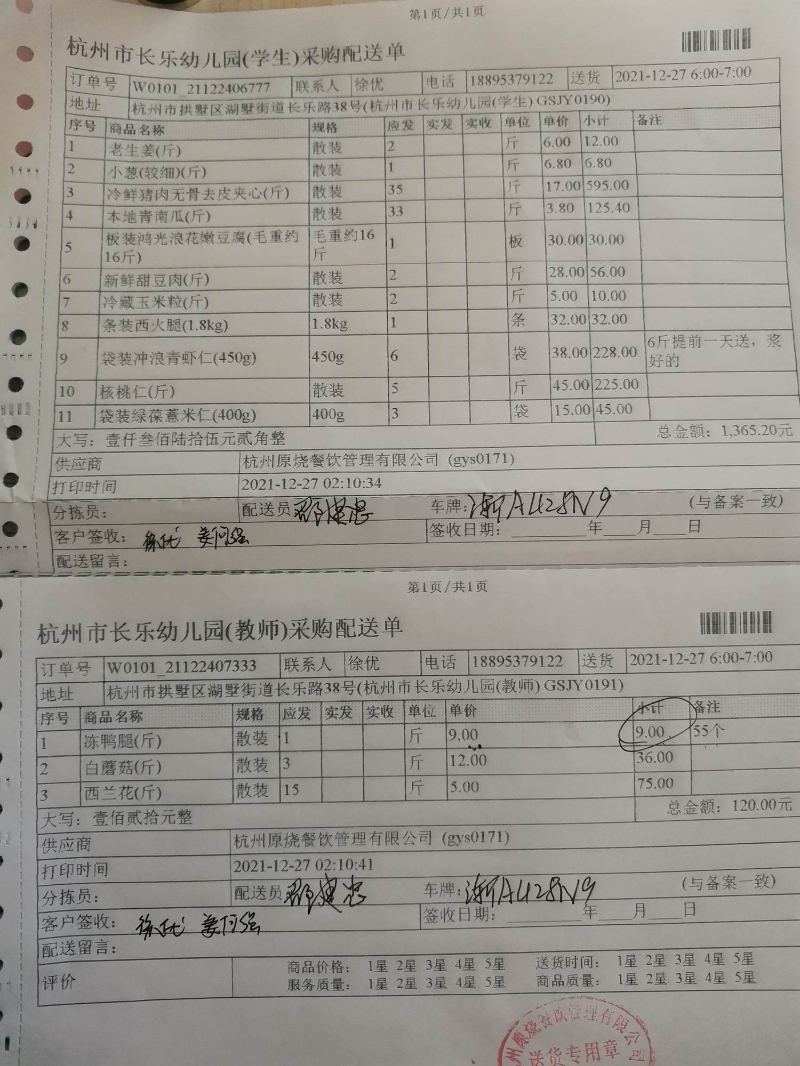 第1页/共1页
杭州市长乐幼儿园(学生)采购配送单
订单号 W0101_21122406777 联系人 徐优 电话 18895379122 送货 2021-12-27 6:00-7:00
地址 杭州市拱墅区湖墅街道长乐路38号(杭州市长乐幼儿园(学生) GSJY0190)
序号 商品名称 规格 应发 实发 实收 单位 单价 小计 备注
1 老生姜(斤) 散装 2 斤 6.00 12.00
2 小葱(较细)(斤) 散装 1 斤 6.80 6.80
3 冷鲜猪肉无骨去皮夹心(斤) 散装 35 斤 17.00 595.00
4 本地青南瓜(斤) 散装 33 斤 3.80 125.40
5 板装鸿光浪花嫩豆腐(毛重约16斤) 毛重约16斤 1 板 30.00 30.00
6 新鲜甜豆肉(斤) 散装 2 斤 28.00 56.00
7 冷藏玉米粒(斤) 散装 2 斤 5.00 10.00
8 条装西火腿(1.8kg) 1.8kg 1 条 32.00 32.00
9 袋装冲浪青虾仁(450g) 450g 6 袋 38.00 228.00 6斤提前一天送，浆好的
10 核桃仁(斤) 散装 5 斤 45.00 225.00
11 袋装绿葆薏米仁(400g) 400g 3 袋 15.00 45.00
大写：壹仟叁佰陆拾伍元贰角整 总金额：1,365.20元
供应商 杭州原烧餐饮管理有限公司 (gys0171)
打印时间 2021-12-27 02:10:34
分拣员： 配送员 车牌: 浙A428N9 (与备案一致)
客户签收： 徐优 签收日期： 年 月 日
配送留言：
第1页/共1页
杭州市长乐幼儿园(教师)采购配送单
订单号 W0101_21122407333 联系人 徐优 电话 18895379122 送货 2021-12-27 6:00-7:00
地址 杭州市拱墅区湖墅街道长乐路38号(杭州市长乐幼儿园(教师) GSJY0191)
序号 商品名称 规格 应发 实发 实收 单位 单价 小计 备注
1 冻鸭腿(斤) 散装 1 斤 9.00 9.00 55个
2 白蘑菇(斤) 散装 3 斤 12.00 36.00
3 西兰花(斤) 散装 15 斤 5.00 75.00
大写：壹佰贰拾元整 总金额：120.00元
供应商 杭州原烧餐饮管理有限公司 (gys0171)
打印时间 2021-12-27 02:10:41
分拣员： 配送员 车牌: 浙A428N9 (与备案一致)
客户签收： 徐优 签收日期： 年 月 日
配送留言：
评价 商品价格： 1星 2星 3星 4星 5星 送货时间： 1星 2星 3星 4星 5星
服务质量： 1星 2星 3星 4星 5星 商品质量： 1星 2星 3星 4星 5星
州原烧餐饮管理有限公司
送货专用章